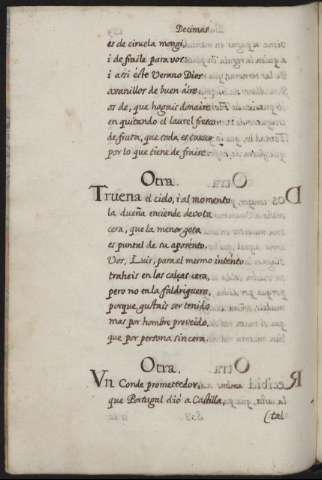 Decimas
es de ciruela mongi,
i de fraile para vos.
i assi este Verano Dios
avanillos de buen aire
os de, que hagais donaire
en quitando el laurel fresco
de fruta, que cada es
por lo que tiene de fraire.
Otra.
Truena el cielo, i al momento
la dueña enciende devota
cera, que la menor gota
es puntal de su aposento.
Vos, Luis, para el mesmo intento
traheis en las calças cera,
pero no en la faldriquera,
porque gustais ser tenido
mas por hombre proveido,
que por persona sincera.
Otra.
Vn Conde prometedor,
que Portugal dió a Castilla,
(tal